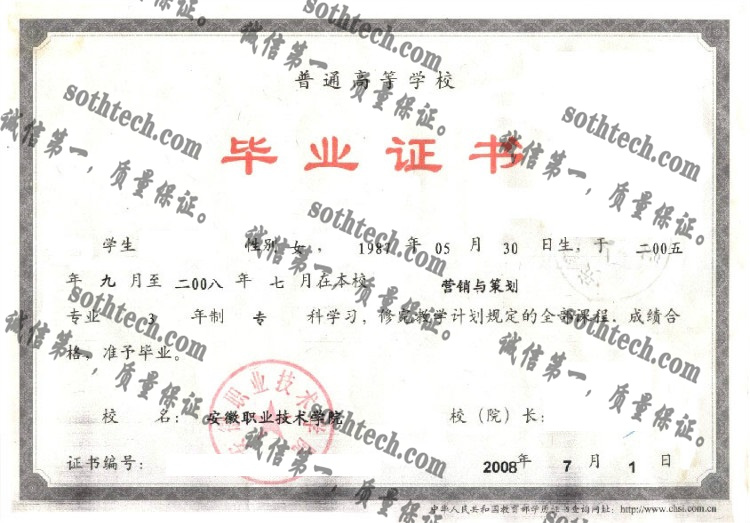 普通高等学校
毕业证书
学生 性别 女， 1987 年 05 月 30 日生，于 二00五
年 九 月至 二00八 年 七 月在本校 营销与策划
专业 3 年制 专 科学习，修完教学计划规定的全部课程，成绩合
格，准予毕业。
校 名：安徽职业技术学院 校（院）长：
证书编号： 2008年 7 月 1 日
中华人民共和国教育部学历证书查询网址：http://www.chsi.com.cn
安徽职业技术学院
sothtech.com
诚信第一，质量保证。
sothtech.com
诚信第一，质量保证。
sothtech.com
诚信第一，质量保证。
sothtech.com
诚信第一，质量保证。
sothtech.com
诚信第一，质量保证。
sothtech.com
诚信第一，质量保证。
sothtech.com
诚信第一，质量保证。
sothtech.com
诚信第一，质量保证。